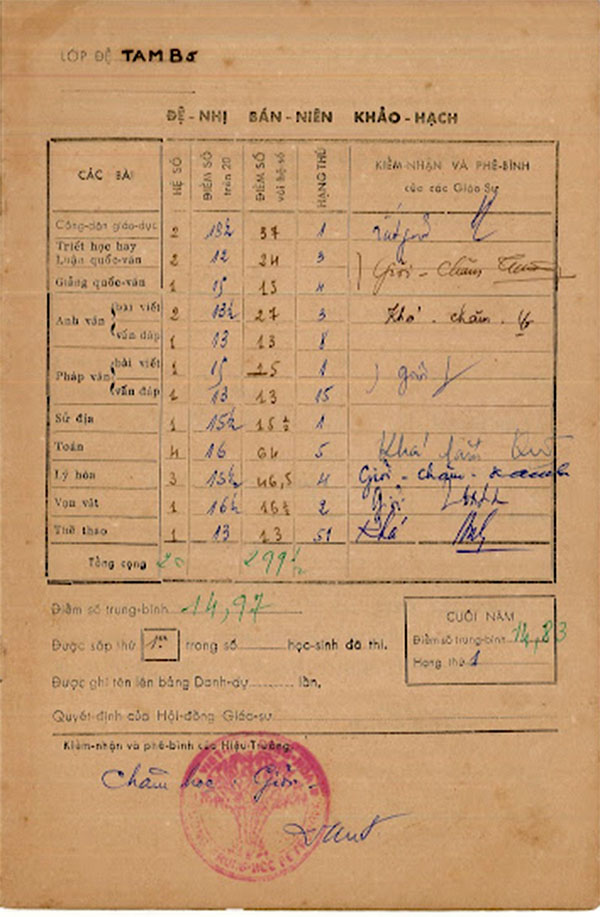 LỚP ĐỆ TAM B5
ĐỆ - NHỊ BÁN - NIÊN KHẢO - HẠCH
CÁC BÀI HỆ SỐ ĐIỂM SỐ trên 20 ĐIỂM SỐ với hệ-số HẠNG THỨ KIỂM-NHẬN VÀ PHÊ-BÌNH của các Giáo Sư
Công-dân giáo-dục 2 18½ 37 1
Triết học hay
Luận quốc-văn 2 12 24 3 Giỏi - Chăm
Giảng quốc-văn 1 15 15 4
Anh văn bài viết 2 13½ 27 3 Khá - chăm
vấn đáp 1 13 13 8
Pháp văn bài viết 1 15 15 1 giỏi
vấn đáp 1 13 13 15
Sử địa 1 15½ 15½ 1
Toán 4 16 64 5 Khá
Lý hóa 3 15½ 46,5 4 Giỏi - chăm
Vạn vật 1 16½ 16½ 2 Giỏi
Thể thao 1 13 13 51 Khá
Tổng cộng 20 299½
Điểm số trung-bình 14,97
CUỐI NĂM
Điểm số trung-bình 14,83
Hạng thứ 1
Được sắp thứ 1er trong số học-sinh đã thi.
Được ghi tên lên bảng Danh-dự lần.
Quyết-định của Hội-đồng Giáo-sư
Kiểm-nhận và phê-bình của Hiệu-Trưởng.
Chăm học - Giỏi